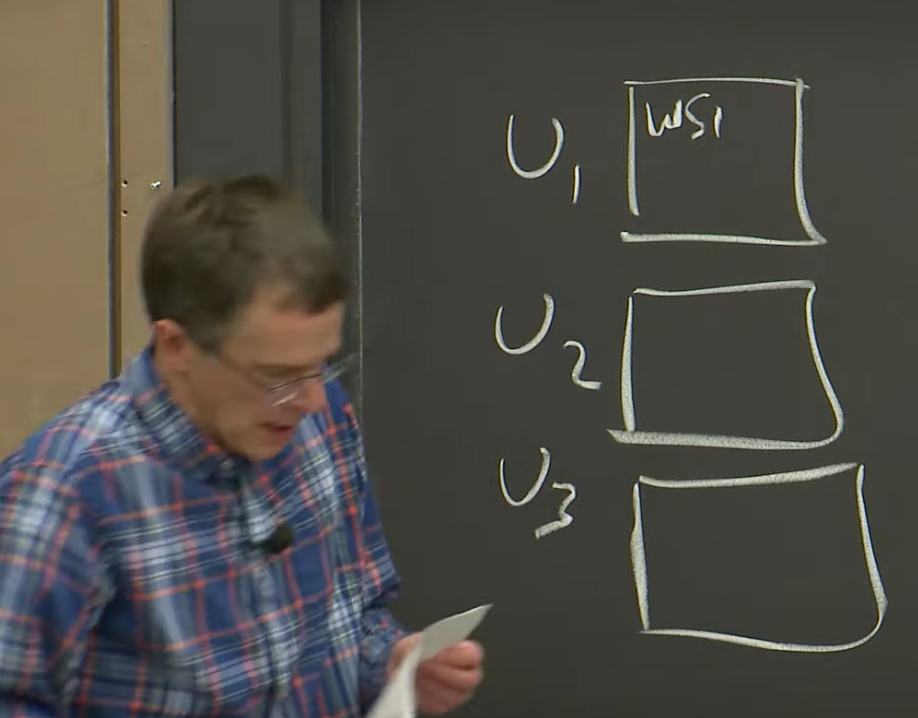 U1 WS1
U2
U3